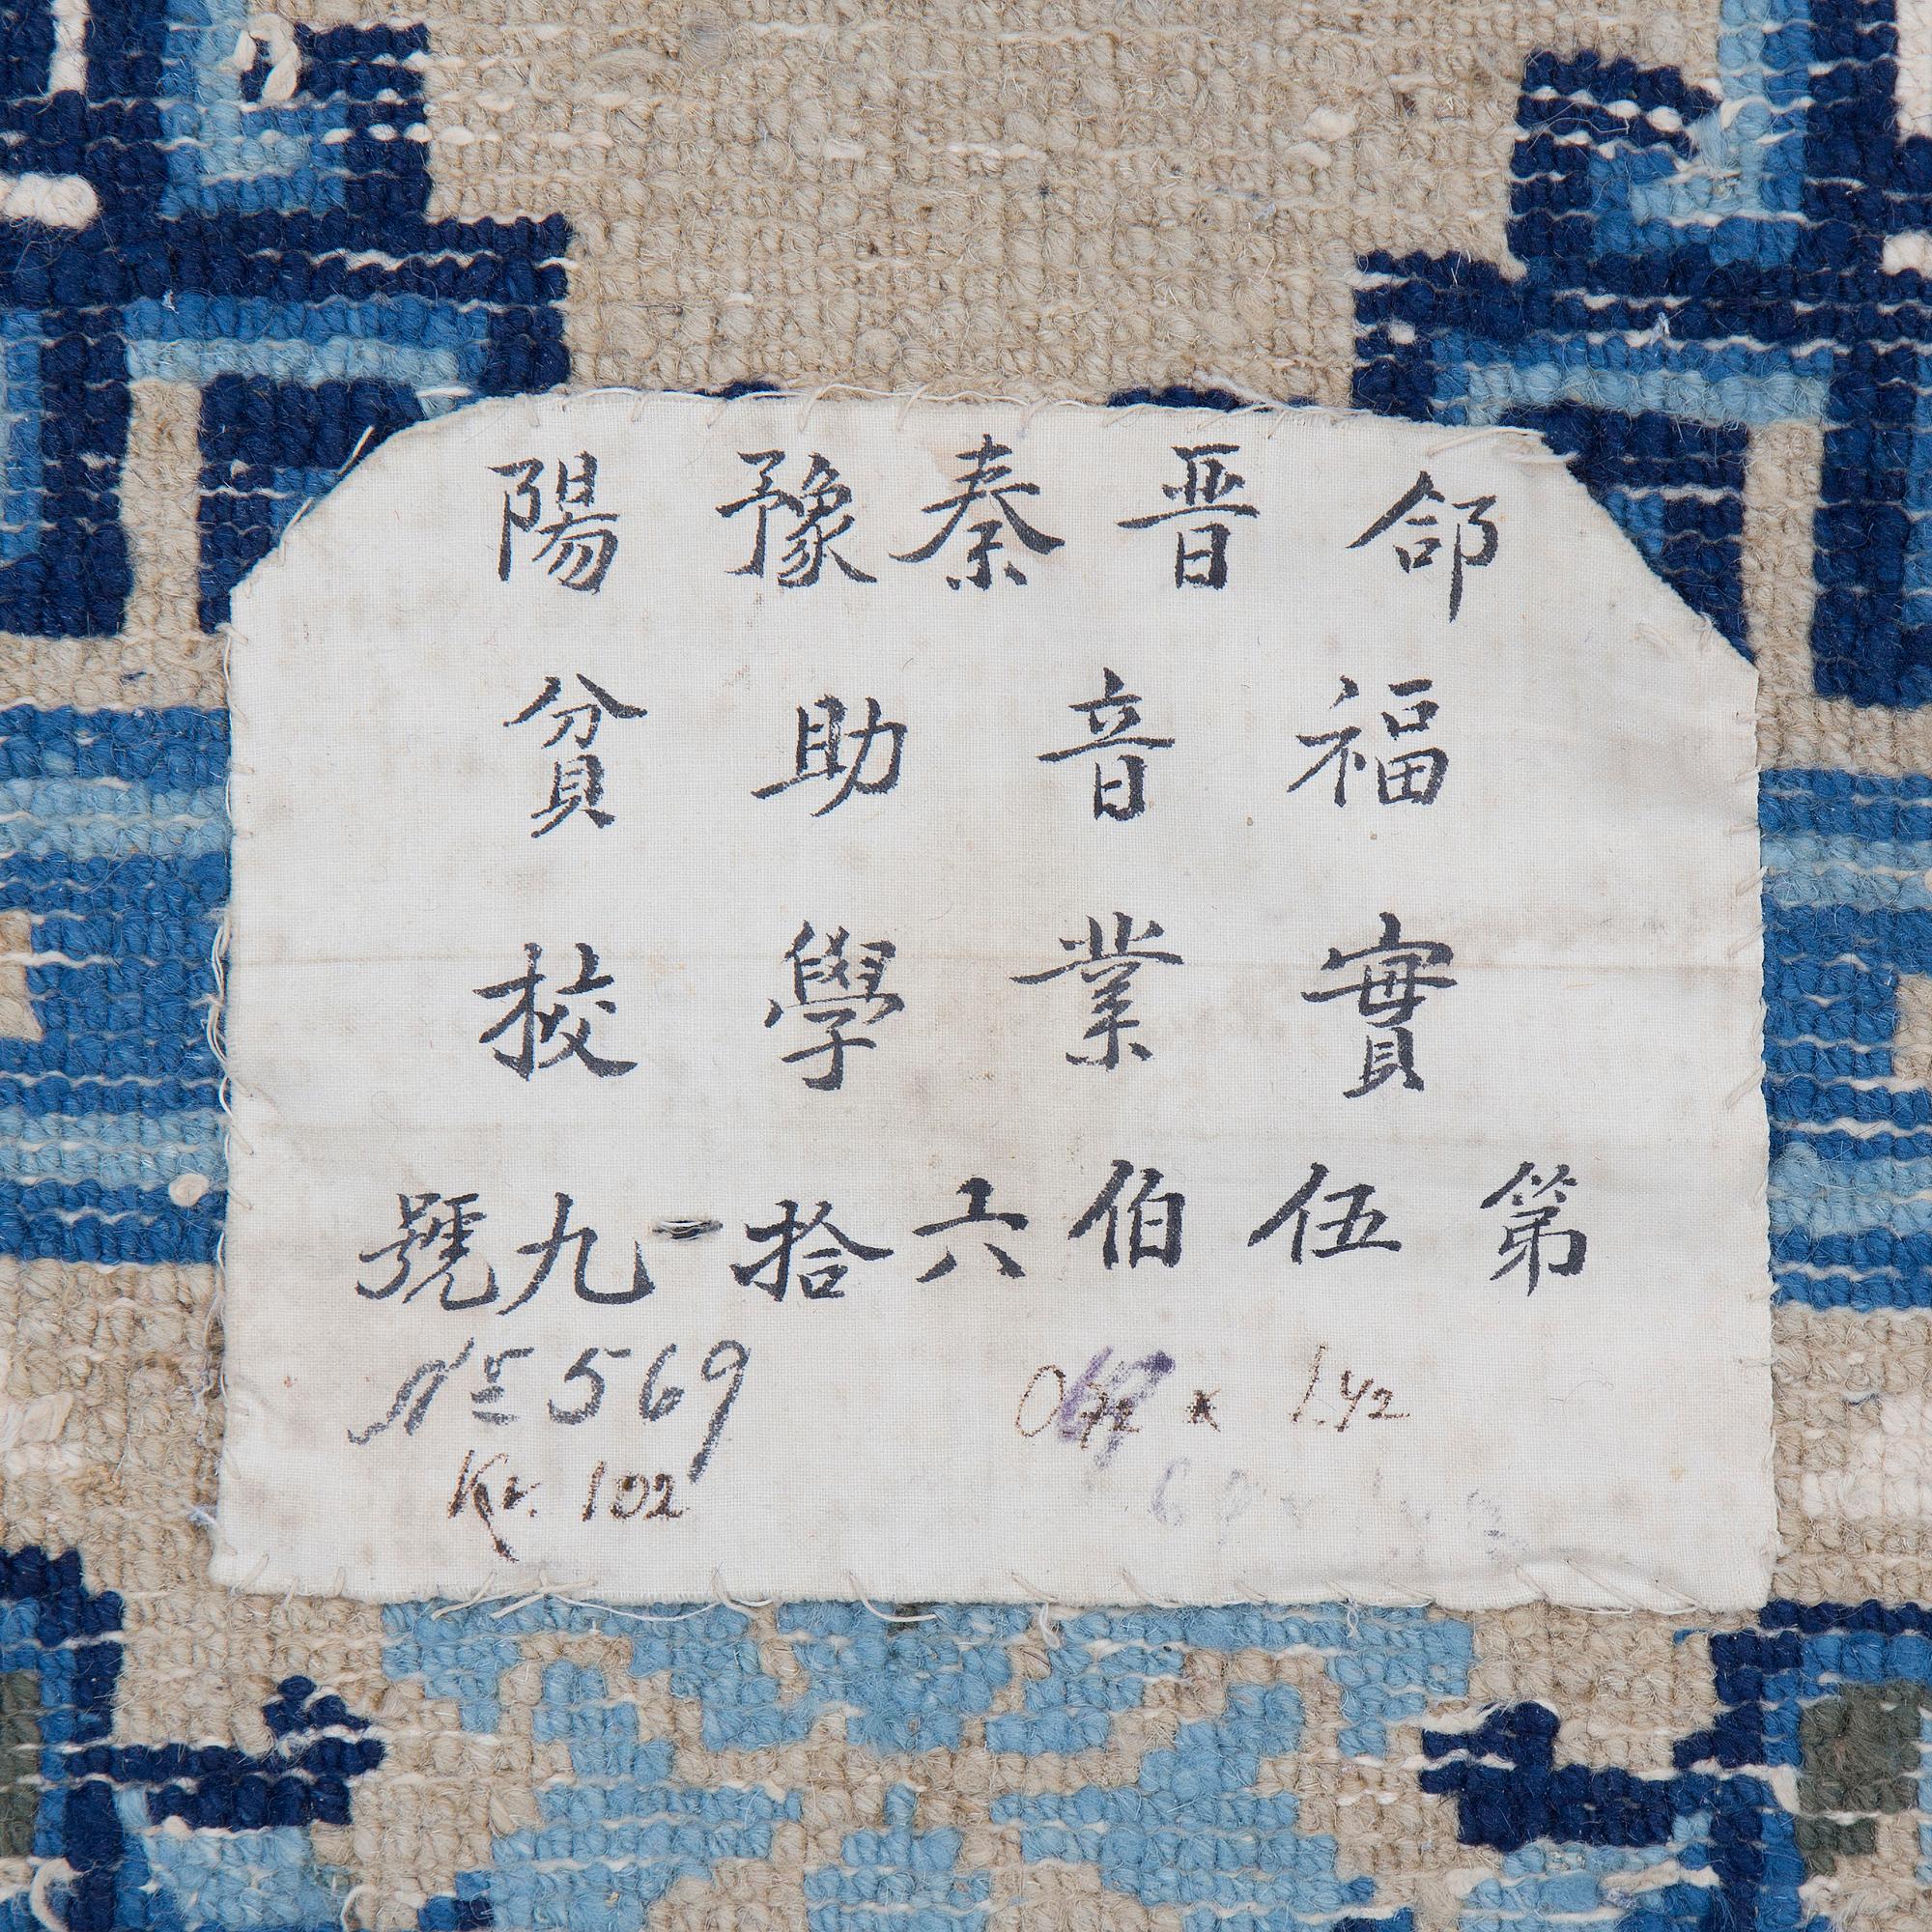 郃晋秦豫陽
福音助貧
實業學校
第伍伯六拾九號
№ 569
x 1.42
Kr. 102